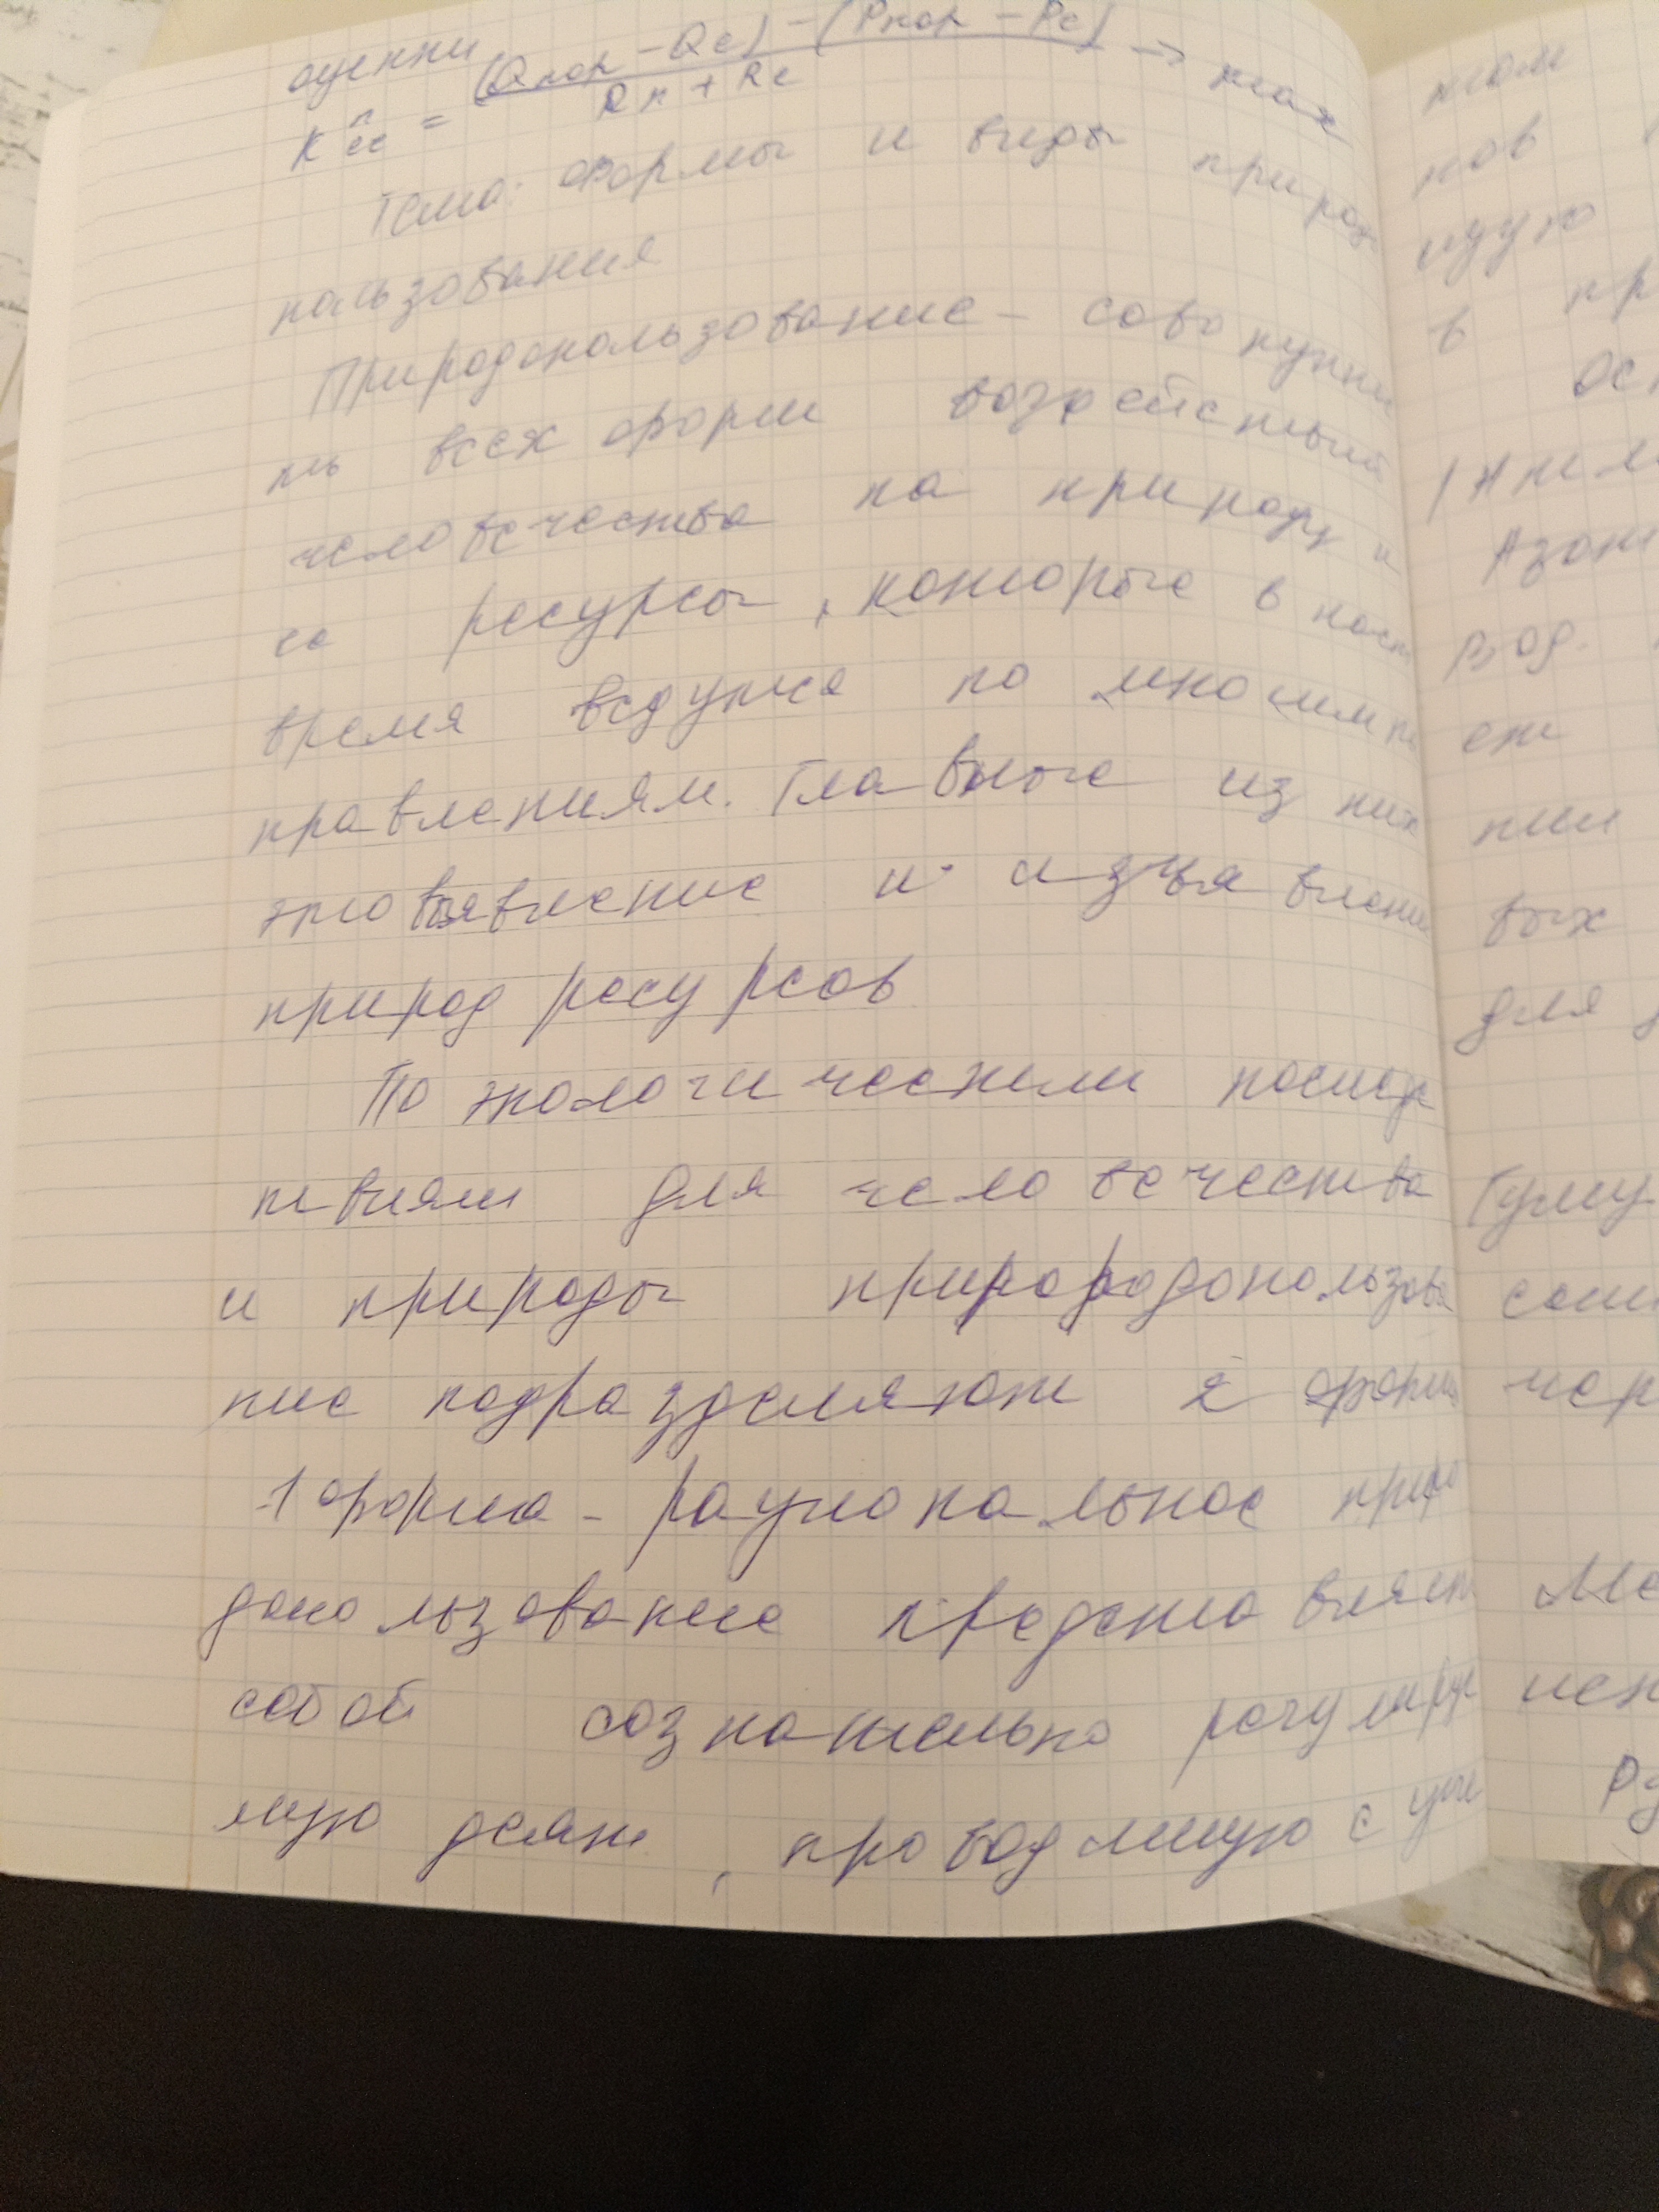 оценки
K = (Qнор - Qс) - (Pнор - Pс) → max
Rн + Rс
Тема: Формы и виды природо
пользования
Природопользование - совокупно
ть всех форм воздействий
человечества на природу и
ее ресурсы, которые в наст
время ведутся по многим на
правлениям. Главные из них
это выявление и изъявление
природ ресурсов
По экологическим послед
ствиям для человечества
и природы прирородопользова
ние подразделяют 2 формы
1 форма - рациональное приро
допользование представляет
собой сознательно регулиру
емую деят , проводимую с уче
том
нов
в пр
вод.
ет
нии
вых
для
Гуму
сот
чер
Ме
исп